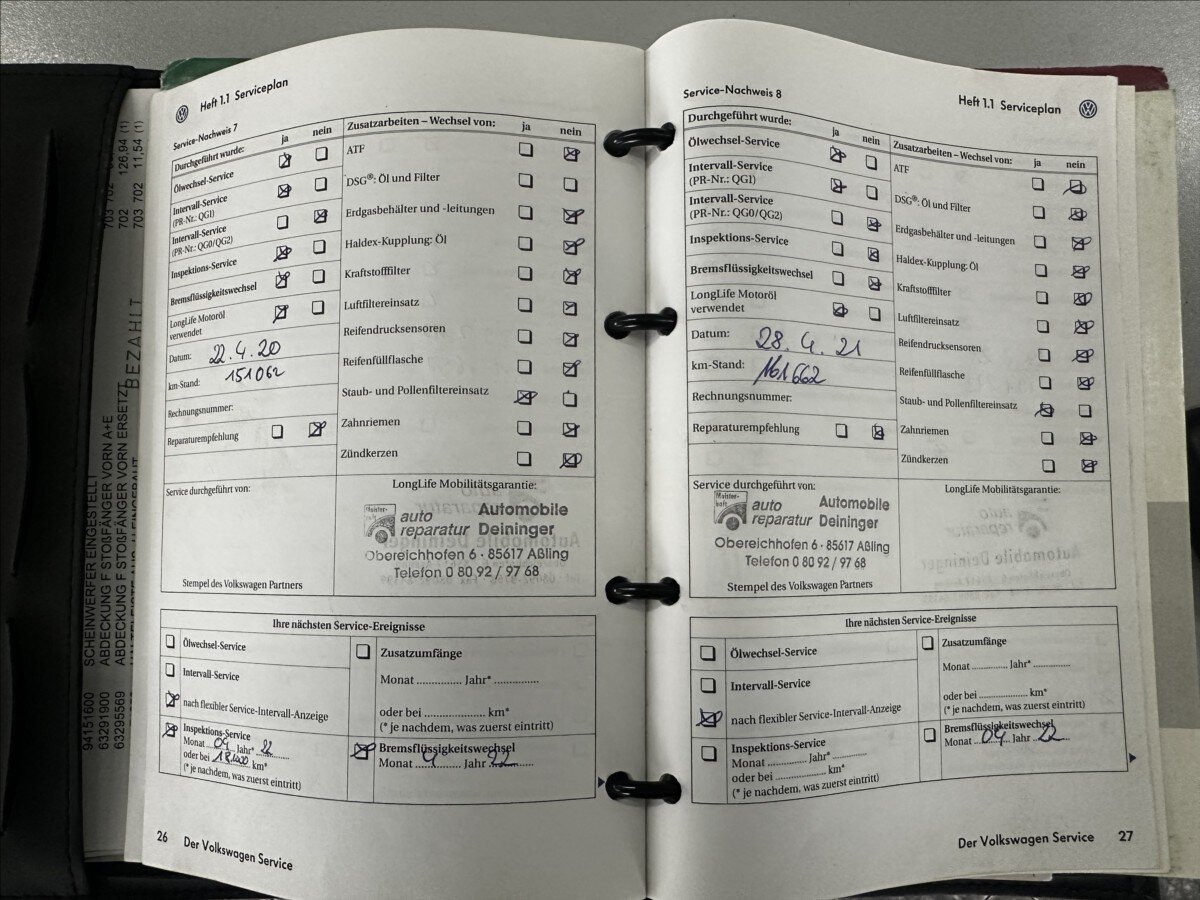 Heft 1.1 Serviceplan
Service-Nachweis 7
Durchgeführt wurde: ja nein
Ölwechsel-Service
Intervall-Service
(PR-Nr.: QG1)
Intervall-Service
(PR-Nr.: QG0/QG2)
Inspektions-Service
Bremsflüssigkeitswechsel
LongLife Motoröl
verwendet
Datum: 22.4.20
km-Stand: 151062
Rechnungsnummer:
Reparaturempfehlung
Zusatzarbeiten – Wechsel von: ja nein
ATF
DSG®: Öl und Filter
Erdgasbehälter und -leitungen
Haldex-Kupplung: Öl
Kraftstofffilter
Luftfiltereinsatz
Reifendrucksensoren
Reifenfüllflasche
Staub- und Pollenfiltereinsatz
Zahnriemen
Zündkerzen
Service durchgeführt von:
Stempel des Volkswagen Partners
LongLife Mobilitätsgarantie:
Meister-
haft
auto
reparatur
Automobile
Deininger
Obereichhofen 6 · 85617 Aßling
Telefon 0 80 92 / 97 68
Ihre nächsten Service-Ereignisse
Ölwechsel-Service
Intervall-Service
nach flexibler Service-Intervall-Anzeige
Inspektions-Service
Monat 04 Jahr* 22
oder bei km*
(* je nachdem, was zuerst eintritt)
Zusatzumfänge
Monat .............. Jahr* ..............
oder bei ................... km*
(* je nachdem, was zuerst eintritt)
Bremsflüssigkeitswechsel
Monat 4 Jahr 22
26 Der Volkswagen Service
Service-Nachweis 8
Heft 1.1 Serviceplan
Durchgeführt wurde: ja nein
Ölwechsel-Service
Intervall-Service
(PR-Nr.: QG1)
Intervall-Service
(PR-Nr.: QG0/QG2)
Inspektions-Service
Bremsflüssigkeitswechsel
LongLife Motoröl
verwendet
Datum: 28.4.21
km-Stand: 161662
Rechnungsnummer:
Reparaturempfehlung
Zusatzarbeiten – Wechsel von: ja nein
ATF
DSG®: Öl und Filter
Erdgasbehälter und -leitungen
Haldex-Kupplung: Öl
Kraftstofffilter
Luftfiltereinsatz
Reifendrucksensoren
Reifenfüllflasche
Staub- und Pollenfiltereinsatz
Zahnriemen
Zündkerzen
Service durchgeführt von:
Meister-
haft
auto
reparatur
Automobile
Deininger
Obereichhofen 6 · 85617 Aßling
Telefon 0 80 92 / 97 68
Stempel des Volkswagen Partners
LongLife Mobilitätsgarantie:
Ihre nächsten Service-Ereignisse
Ölwechsel-Service
Intervall-Service
nach flexibler Service-Intervall-Anzeige
Inspektions-Service
Monat .............. Jahr* ..............
oder bei ................... km*
(* je nachdem, was zuerst eintritt)
Zusatzumfänge
Monat .............. Jahr* ..............
oder bei ................... km*
(* je nachdem, was zuerst eintritt)
Bremsflüssigkeitswechsel
Monat 04 Jahr 22
Der Volkswagen Service 27
94151600 SCHEINWERFER EINGESTELLT
63291900 ABDECKUNG F STOßFÄNGER VORN A+E
63295569 ABDECKUNG F STOßFÄNGER VORN ERSETZT
702 126,94 (1)
703 702 11,54 (1)
BEZAHLT